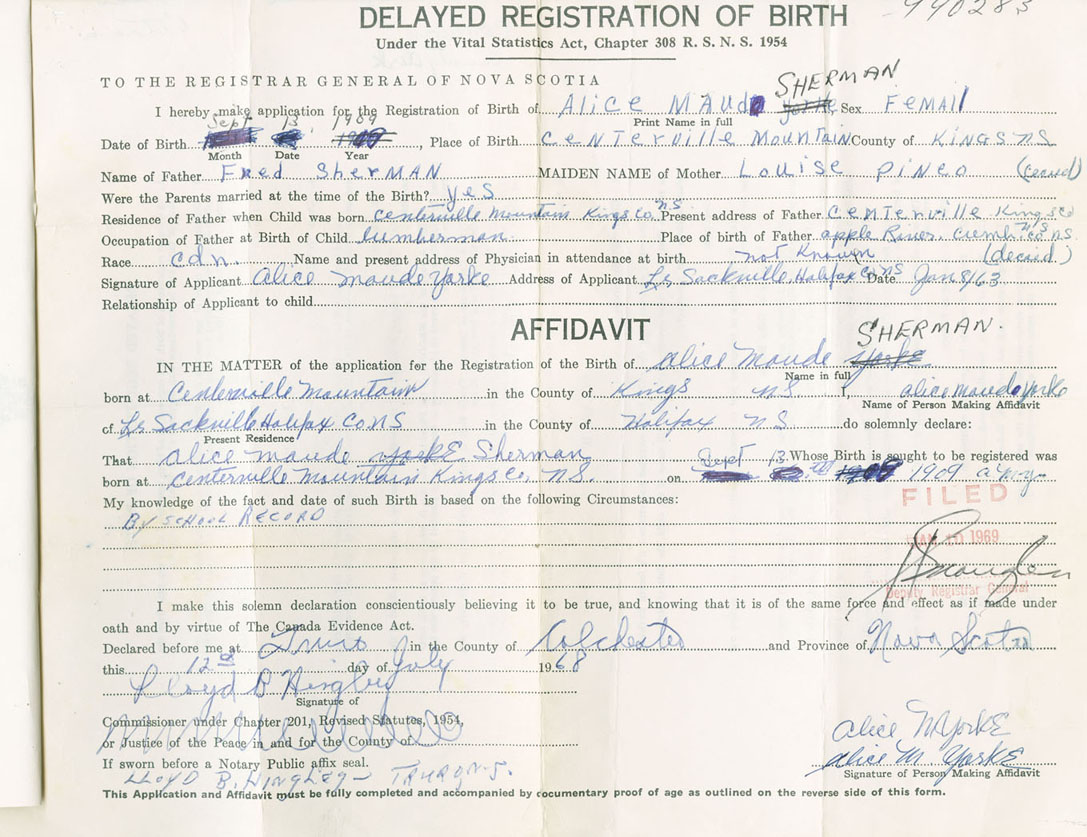 DELAYED REGISTRATION OF BIRTH
990283
Under the Vital Statistics Act, Chapter 308 R. S. N. S. 1954
TO THE REGISTRAR GENERAL OF NOVA SCOTIA
SHERMAN
I hereby make application for the Registration of Birth of Alice Maud Yorke Sex Femall
Print Name in full
Sept 13 1909
Date of Birth, Place of Birth Centerville Mountain County of Kings NS
Month Date Year
Name of Father Fred Sherman MAIDEN NAME of Mother Louise Pineo (ceased)
Were the Parents married at the time of the Birth? yes
Residence of Father when Child was born Centerville Mountain Kings Co. NS Present address of Father Centerville Kings Co
Occupation of Father at Birth of Child lumberman Place of birth of Father apple River Cumb Co NS
Race cdn. Name and present address of Physician in attendance at birth not Known (decased)
Signature of Applicant Alice Maude Yorke Address of Applicant Lr Sackville, Halifax Co NS Date Jan 8/63
Relationship of Applicant to child
AFFIDAVIT
SHERMAN.
IN THE MATTER of the application for the Registration of the Birth of Alice Maude Yorke
Name in full
born at Centerville Mountain in the County of Kings NS I, alice maude Yorke
Name of Person Making Affidavit
of Lr Sackville Halifax Co NS in the County of Halifax NS do solemnly declare:
Present Residence
That alice maude Yorke Sherman Sept 13 Whose Birth is sought to be registered was
born at Centerville Mountain Kings Co. N.S. on 1909 a.m.y.
My knowledge of the fact and date of such Birth is based on the following Circumstances:
FILED
By school Record
1969
Deputy Registrar General
I make this solemn declaration conscientiously believing it to be true, and knowing that it is of the same force and effect as if made under
oath and by virtue of The Canada Evidence Act.
Declared before me at Truro in the County of Colchester and Province of Nova Scotia
this 12th day of July 1968
Lloyd B Hingley
Signature of
Commissioner under Chapter 201, Revised Statutes, 1954,
or Justice of the Peace in and for the County of
Alice M Yorke
If sworn before a Notary Public affix seal.
Alice M. Yorke
Lloyd B. Hingley - Truro N.S.
Signature of Person Making Affidavit
This Application and Affidavit must be fully completed and accompanied by documentary proof of age as outlined on the reverse side of this form.